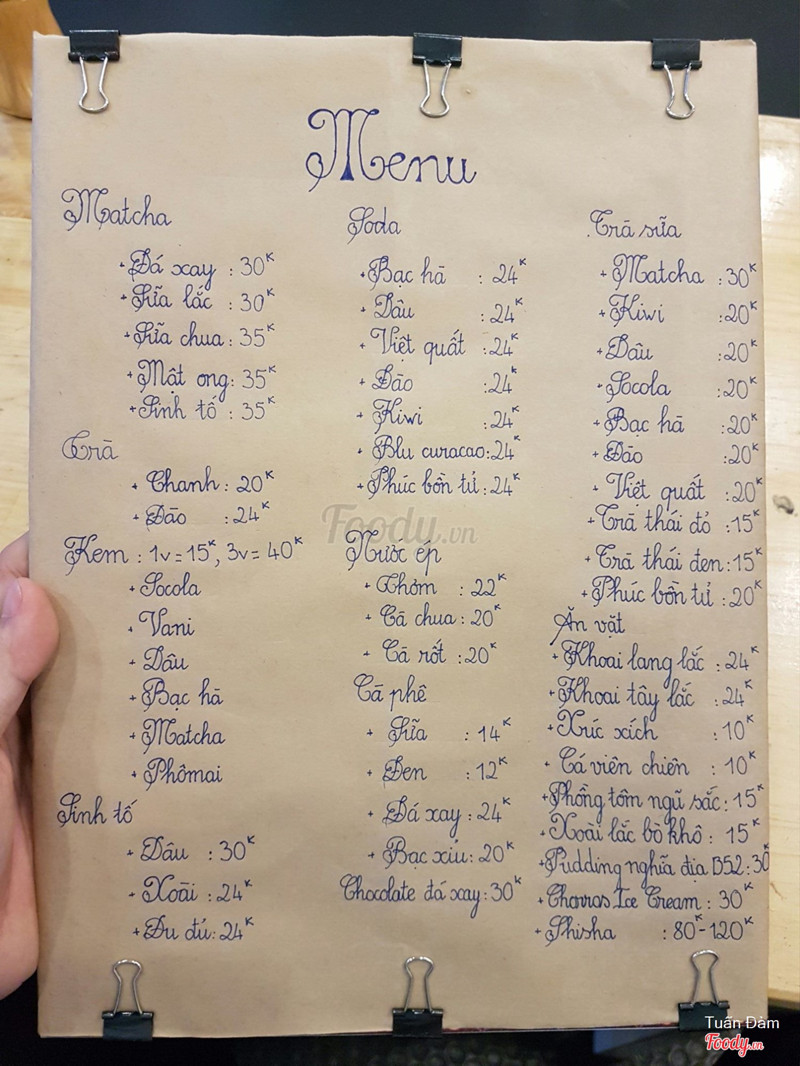 Menu
Matcha
+ Đá xay : 30K
+ Sữa lắc : 30K
+ Sữa chua : 35K
+ Mật ong : 35K
+ Sinh tố : 35K
Trà
+ Chanh : 20K
+ Đào : 24K
Kem : 1v = 15K, 3v = 40K
+ Socola
+ Vani
+ Dâu
+ Bạc hà
+ Matcha
+ Phômai
Sinh tố
+ Dâu : 30K
+ Xoài : 24K
+ Đu đủ : 24K
Soda
+ Bạc hà : 24K
+ Dâu : 24K
+ Việt quất : 24K
+ Đào : 24K
+ Kiwi : 24K
+ Blu curacao : 24K
+ Phúc bồn tử : 24K
Nước ép
+ Thơm : 22K
+ Cà chua : 20K
+ Cà rốt : 20K
Cà phê
+ Sữa : 14K
+ Đen : 12K
+ Đá xay : 24K
+ Bạc xỉu : 20K
Chocolate đá xay : 30K
Trà sữa
+ Matcha : 30K
+ Kiwi : 20K
+ Dâu : 20K
+ Socola : 20K
+ Bạc hà : 20K
+ Đào : 20K
+ Việt quất : 20K
+ Trà thái đỏ : 15K
+ Trà thái đen : 15K
+ Phúc bồn tử : 20K
Ăn vặt
+ Khoai lang lắc : 24K
+ Khoai tây lắc : 24K
+ Xúc xích : 10K
+ Cá viên chiên : 10K
+ Phồng tôm ngũ sắc : 15K
+ Xoài lắc bò khô : 15K
+ Pudding nghĩa địa B52 : 30K
+ Churros Ice Cream : 30K
+ Shisha : 80K - 120K
Foody.vn
Tuấn Đàm
Foody.vn